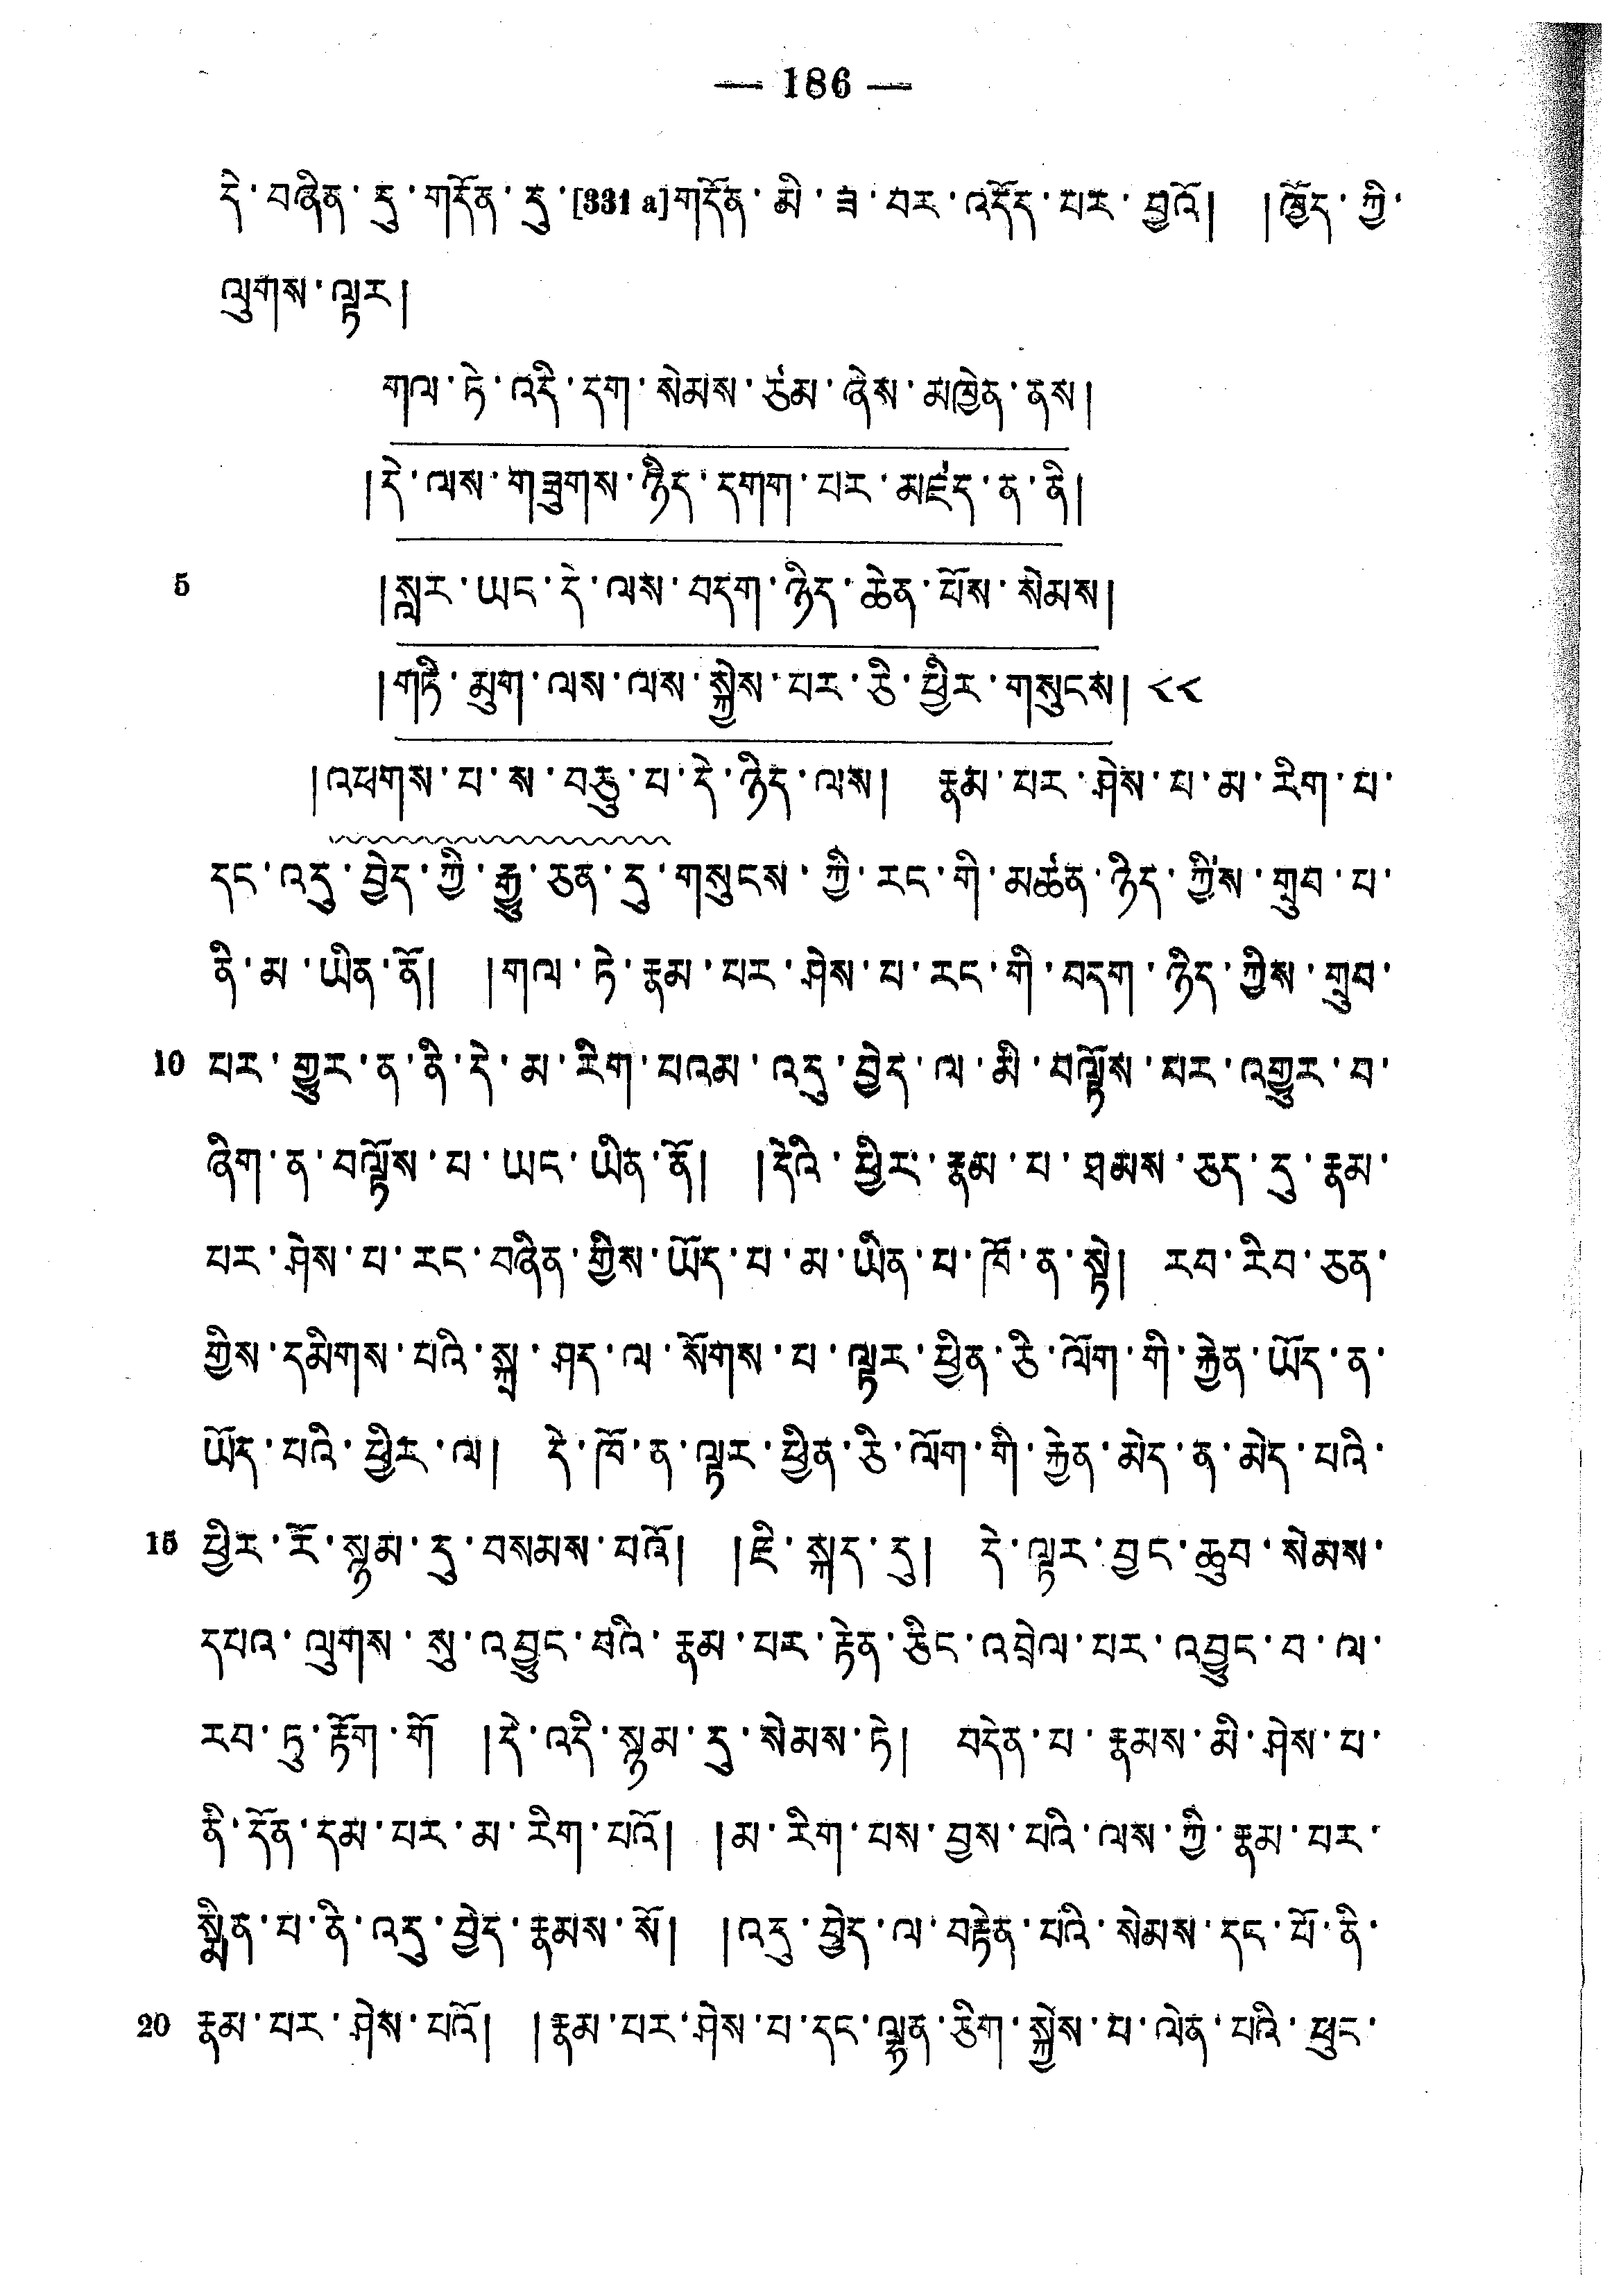 — 186 —
དེ་བཞིན་དུ་གདོན་དུ་[331 a]གདོན་མི་ཟ་བར་འདོད་པར་བྱའོ། །ཁྱོད་ཀྱི་
ལུགས་ལྟར།
གལ་ཏེ་འདི་དག་སེམས་ཙམ་ཞེས་མཁྱེན་ནས།
།དེ་ལས་གཟུགས་ཉིད་དགག་པར་མཛད་ན་ནི།
5 །སླར་ཡང་དེ་ལས་བདག་ཉིད་ཆེན་པོས་སེམས།
།གཏི་མུག་ལས་ལས་སྐྱེས་པར་ཅི་ཕྱིར་གསུངས། ༨༨
།འཕགས་པ་ས་བཅུ་པ་དེ་ཉིད་ལས། རྣམ་པར་ཤེས་པ་མ་རིག་པ་
དང་འདུ་བྱེད་ཀྱི་རྒྱུ་ཅན་དུ་གསུངས་ཀྱི་རང་གི་མཚན་ཉིད་ཀྱིས་གྲུབ་པ་
ནི་མ་ཡིན་ནོ། །གལ་ཏེ་རྣམ་པར་ཤེས་པ་རང་གི་བདག་ཉིད་ཀྱིས་གྲུབ་
10 པར་གྱུར་ན་ནི་དེ་མ་རིག་པའམ་འདུ་བྱེད་ལ་མི་བལྟོས་པར་འགྱུར་བ་
ཞིག་ན་བལྟོས་པ་ཡང་ཡིན་ནོ། །དེའི་ཕྱིར་རྣམ་པ་ཐམས་ཅད་དུ་རྣམ་
པར་ཤེས་པ་རང་བཞིན་གྱིས་ཡོད་པ་མ་ཡིན་པ་ཁོ་ན་སྟེ། རབ་རིབ་ཅན་
གྱིས་དམིགས་པའི་སྐྲ་ཤད་ལ་སོགས་པ་ལྟར་ཕྱིན་ཅི་ལོག་གི་རྐྱེན་ཡོད་ན་
ཡོད་པའི་ཕྱིར་ལ། དེ་ཁོ་ན་ལྟར་ཕྱིན་ཅི་ལོག་གི་རྐྱེན་མེད་ན་མེད་པའི་
15 ཕྱིར་རོ་སྙམ་དུ་བསམས་པའོ། །ཇི་སྐད་དུ། དེ་ལྟར་བྱང་ཆུབ་སེམས་
དཔའ་ལུགས་སུ་འབྱུང་བའི་རྣམ་པར་རྟེན་ཅིང་འབྲེལ་པར་འབྱུང་བ་ལ་
རབ་ཏུ་རྟོག་གོ །དེ་འདི་སྙམ་དུ་སེམས་ཏེ། བདེན་པ་རྣམས་མི་ཤེས་པ་
ནི་དོན་དམ་པར་མ་རིག་པའོ། །མ་རིག་པས་བྱས་པའི་ལས་ཀྱི་རྣམ་པར་
སྨིན་པ་ནི་འདུ་བྱེད་རྣམས་སོ། །འདུ་བྱེད་ལ་བརྟེན་པའི་སེམས་དང་པོ་ནི་
20 རྣམ་པར་ཤེས་པའོ། །རྣམ་པར་ཤེས་པ་དང་ལྷན་ཅིག་སྐྱེས་པ་ལེན་པའི་ཕུང་